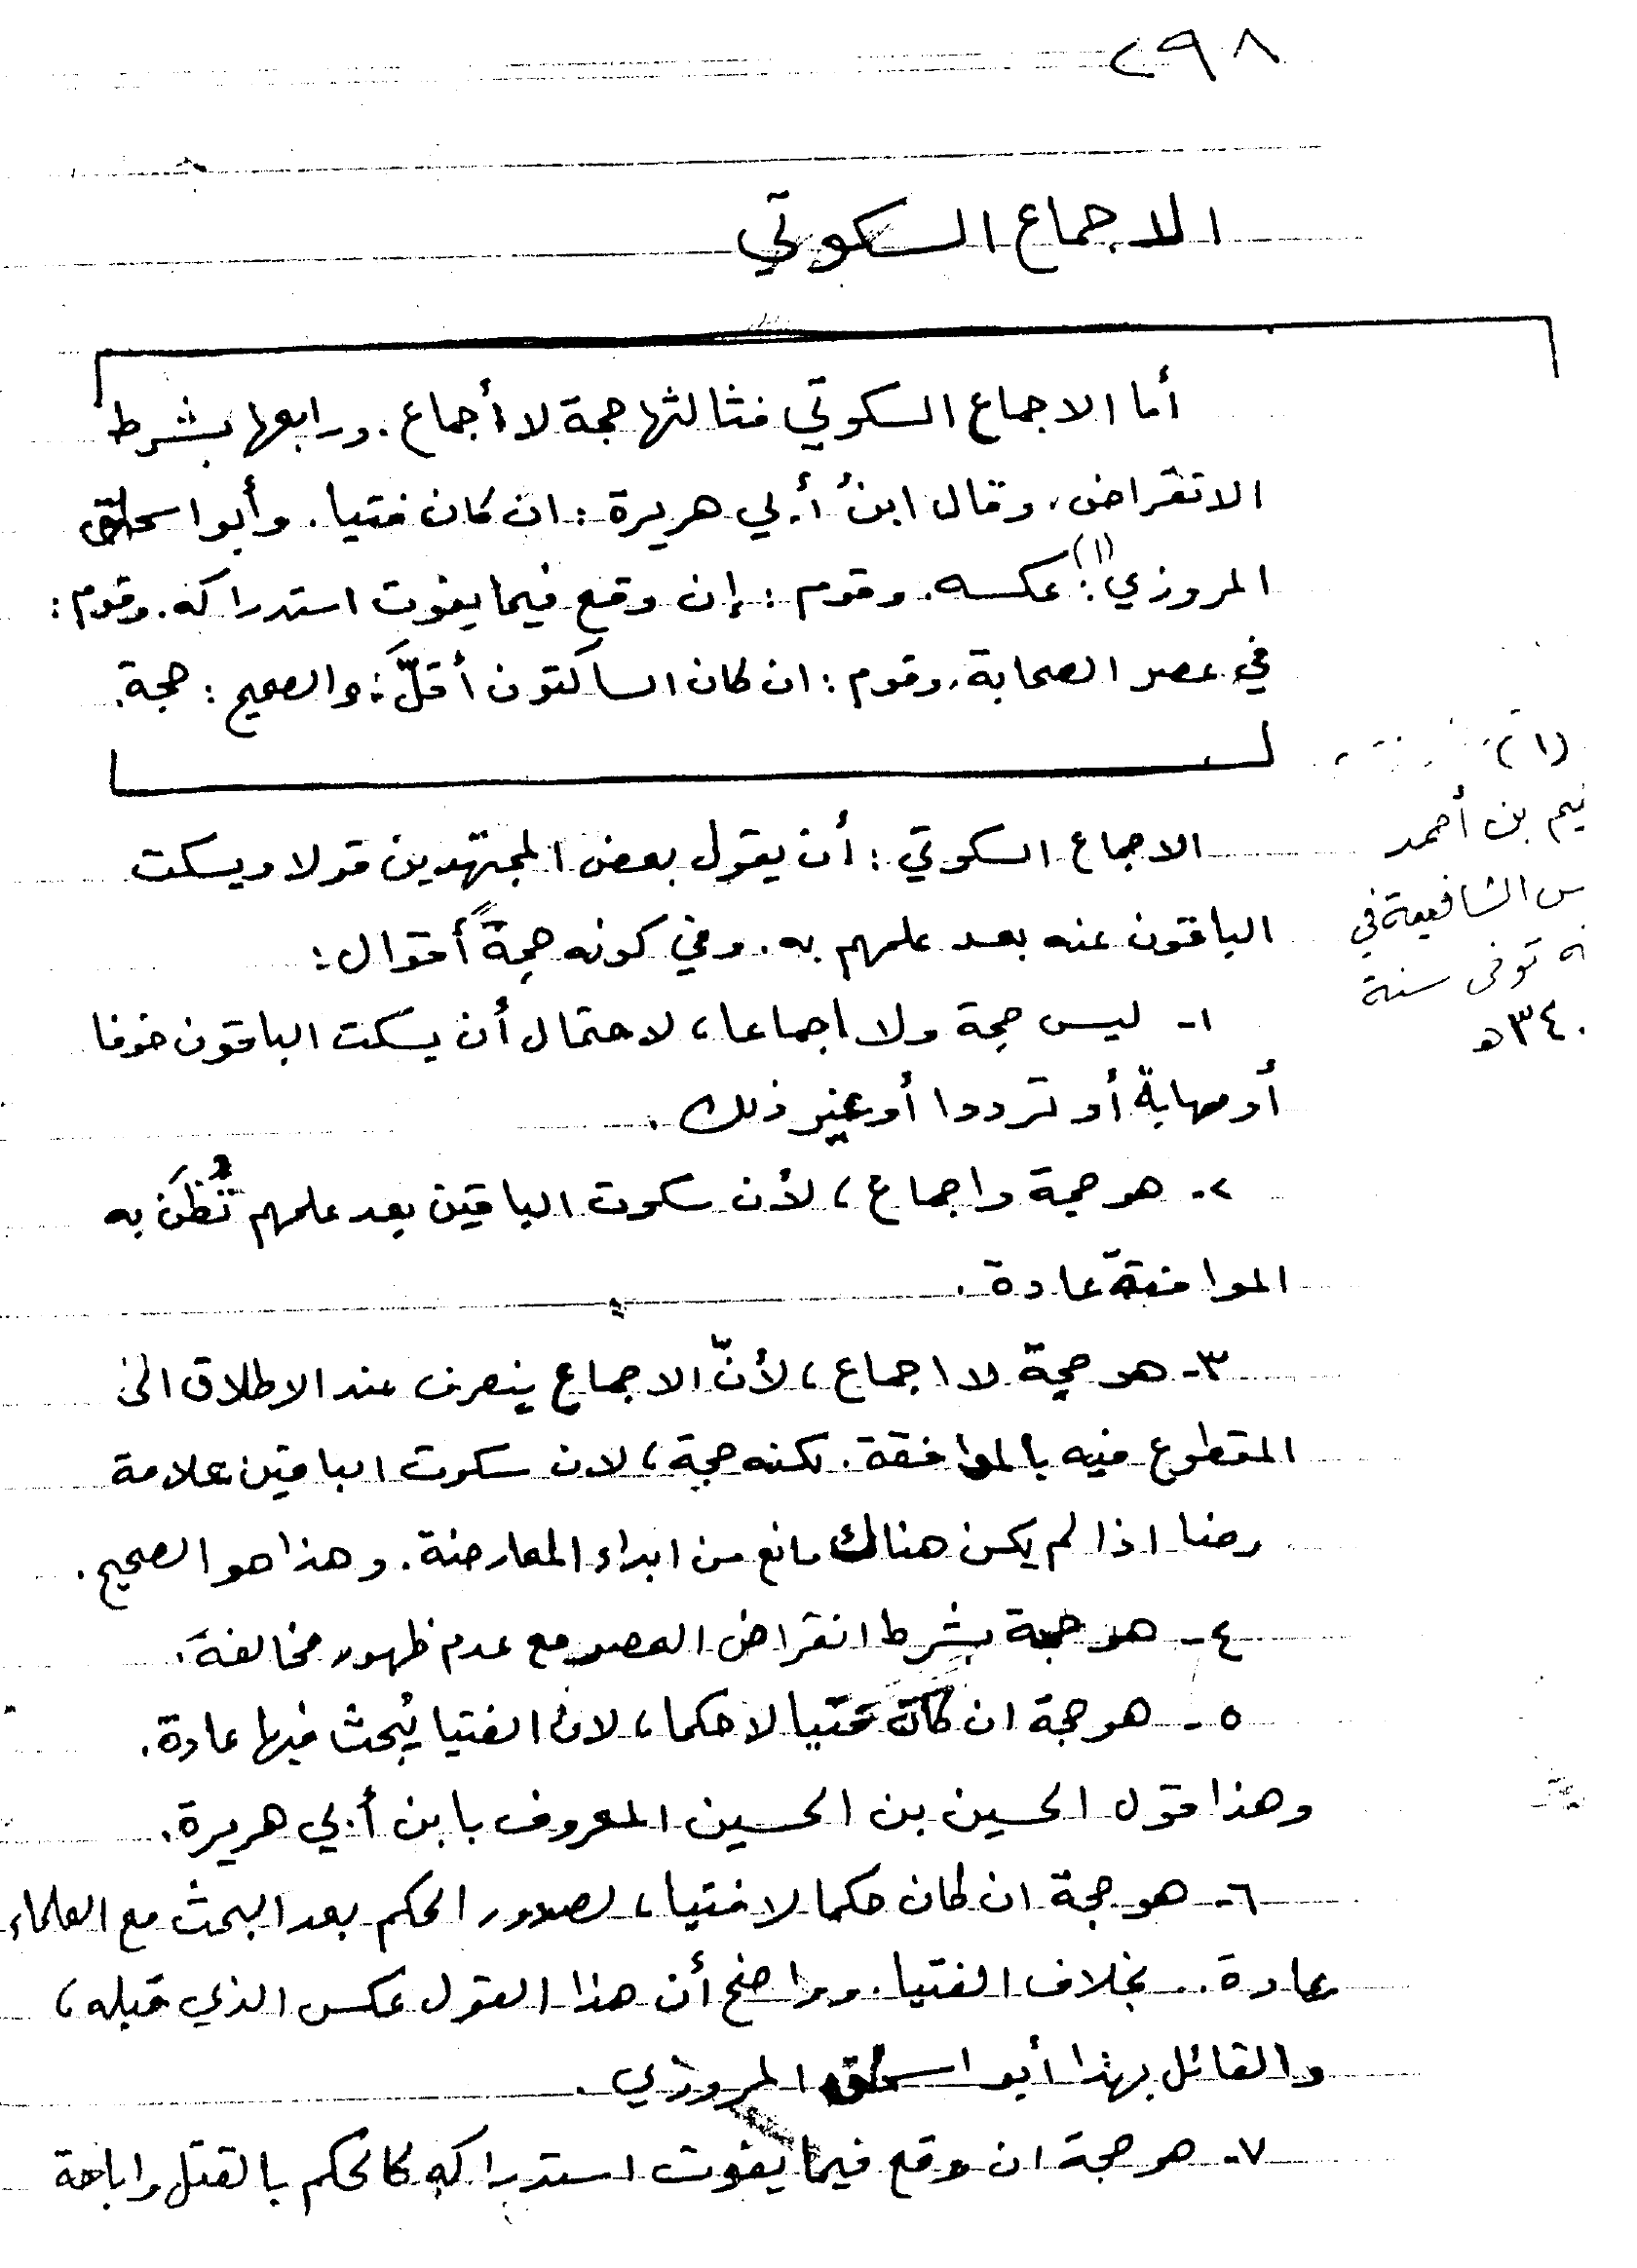 ٢٩٨
الاجماع السكوتي
أما الاجماع السكوتي فثالثها حجة لا أجماع. ورابعها بشرط
الانقراض، وقال ابنُ أبي هريرة : ان كان فتيا. وأبو اسحاق
المروزي(١): عكسه. وقوم : إن وقع فيما يفوت استدراكه. وقوم :
في عصر الصحابة. وقوم : ان كان الساكتون أقلَّ. والصحيح : حجة.
الاجماع السكوتي : أن يقول بعض المجتهدين قولا ويسكت
الباقون عنه بعد علمهم به. وفي كونه حجةً أقوال :
١- ليس حجة ولا اجماعا، لاحتمال أن يسكت الباقون خوفا
أو مهابةً أو ترددا أو غير ذلك.
٢- هو حجة واجماع، لأن سكوت الباقين بعد علمهم تُظَن به
الموافقة عادة.
٣- هو حجة لا اجماع، لأنّ الاجماع ينصرف عند الاطلاق الى
المقطوع فيه بالموافقة. لكنه حجة، لان سكوت الباقين علامة
رضا اذا لم يكن هناك مانع من ابداء المعارضة. وهذا هو الصحيح.
٤- هو حجة بشرط انقراض العصر مع عدم ظهور مخالفة.
٥- هو حجة ان كان فتيا لا حكما، لان الفتيا يُبحث فيها عادة.
وهذا قول الحسين بن الحسين المعروف بابن أبي هريرة.
٦- هو حجة ان كان حكما لا فتيا، لصدور الحكم بعد البحث مع العلماء
عادة.. بخلاف الفتيا. وواضح أن هذا القول عكس الذي قبله،
والقائل بهذا أبو اسحاق المروزي.
٧- هو حجة ان وقع فيما يفوت استدراكه كالحكم بالقتل واباحة
(١)
يم بن أحمد
س الشافعية في
ه توفى سنة
٣٤٠ه